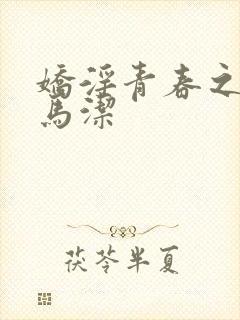 嬌淫青春之
馬潔
茯苓半夏